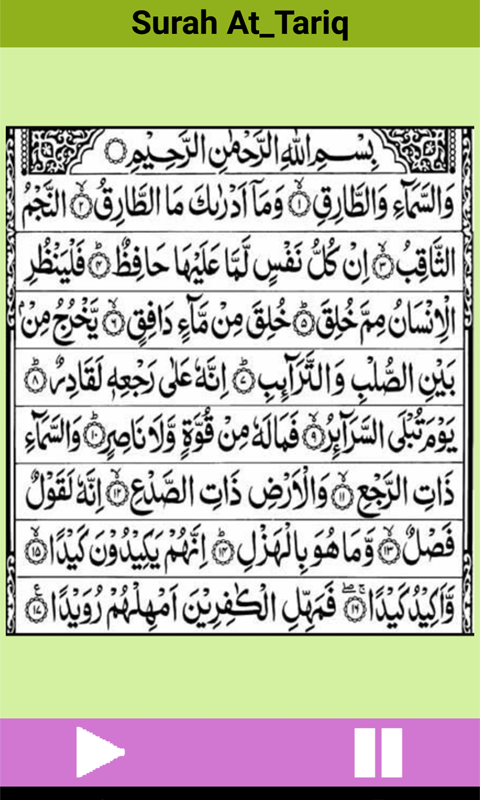 Surah At_Tariq
بِسْمِ اللهِ الرَّحْمٰنِ الرَّحِيْمِ
وَالسَّمَآءِ وَالطَّارِقِ ۙ﴿۱﴾ وَمَآ اَدْرٰىكَ مَا الطَّارِقُ ۙ﴿۲﴾ النَّجْمُ
الثَّاقِبُ ۙ﴿۳﴾ اِنْ كُلُّ نَفْسٍ لَّمَّا عَلَيْهَا حَافِظٌ ؕ﴿۴﴾ فَلْيَنْظُرِ
الْاِنْسَانُ مِمَّ خُلِقَ ؕ﴿۵﴾ خُلِقَ مِنْ مَّآءٍ دَافِقٍ ۙ﴿۶﴾ يَّخْرُجُ مِنْۢ
بَيْنِ الصُّلْبِ وَالتَّرَآئِبِ ؕ﴿۷﴾ اِنَّهٗ عَلٰى رَجْعِهٖ لَقَادِرٌ ؕ﴿۸﴾
يَوْمَ تُبْلَى السَّرَآئِرُ ۙ﴿۹﴾ فَمَا لَهٗ مِنْ قُوَّةٍ وَّلَا نَاصِرٍ ؕ﴿۱۰﴾ وَالسَّمَآءِ
ذَاتِ الرَّجْعِ ۙ﴿۱۱﴾ وَالْاَرْضِ ذَاتِ الصَّدْعِ ۙ﴿۱۲﴾ اِنَّهٗ لَقَوْلٌ
فَصْلٌ ۙ﴿۱۳﴾ وَّمَا هُوَ بِالْهَزْلِ ؕ﴿۱۴﴾ اِنَّهُمْ يَكِيْدُوْنَ كَيْدًا ۙ﴿۱۵﴾
وَّاَكِيْدُ كَيْدًا ۚۖ﴿۱۶﴾ فَمَهِّلِ الْكٰفِرِيْنَ اَمْهِلْهُمْ رُوَيْدًا ﴿۱۷﴾